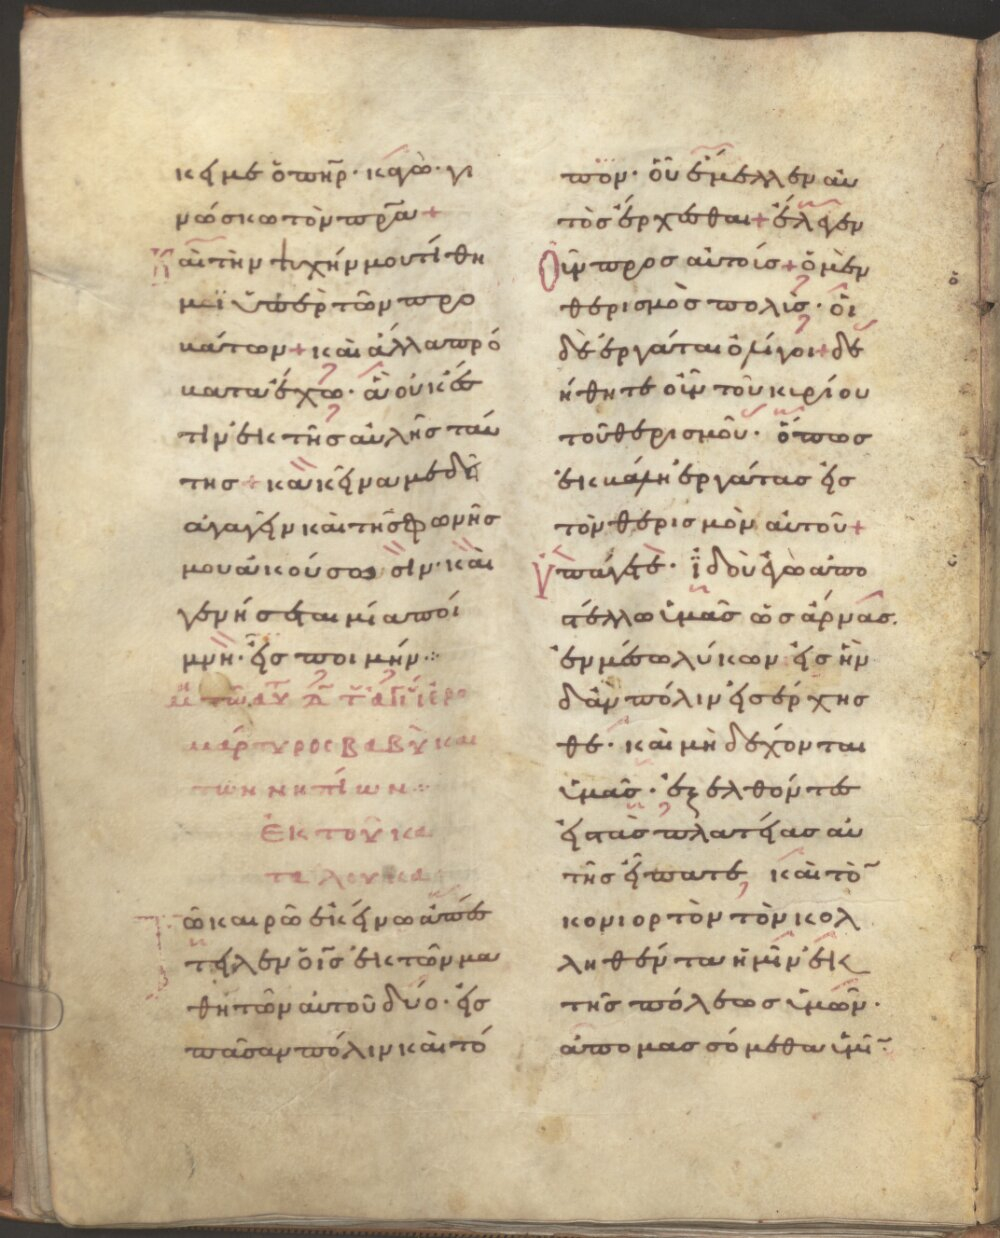 κει με ὁ πηρ· καγὼ· γι
νώσκω τὸν πρα +
Καὶ τὴν ψυχήν μου τίθη
μαϊ ὑπὲρ τῶν προ
κάτων + καὶ ἄλλα πρό
κατα ἔχω· ἃ οὐκ ἔσ
τιν ἐκ τῆς αὐλῆς ταύ
της + κακεῖνα με δεῖ
ἀγαγεῖν καὶ τῆς φωνῆς
μου ἀκούσωσιν· καὶ
γενήσεται μία ποί
μνη· εἷς ποιμήν:
ἱερο
μάρτυρος βαβύλα και
των νηπίων:
Ἐκ τοῦ κα
τα λουκα
Τῶ καιρῶ ἐκείνω ἀπέσ
τειλεν ὁ ις ἐκ τῶν μα
θητῶν αὐτοῦ δύο· εἰς
πᾶσαν πόλιν καὶ τό
πον· οὗ ἔμελλεν αὐ
τὸς ἔρχεσθαι + ἔλεγεν
Οὖν προς αὐτοίς + ὁ μὲν
θερισμὸς πολίς· οἱ
δὲ ἐργάται ὀλίγοι + δε
ήθητε οὖν τοῦ κιρίου
τοῦ θερισμοῦ· ὅπως
ἐκβάλη ἐργάτας εἰς
τὸν θερισμὸν αὐτοῦ +
Ὑπάγετε· ἰδοὺ ἐγὼ ἀπο
στέλλω ὑμᾶς ὡς ἄρνας.
ἐν μέσω λύκων εἰς ἣν
δἂν πόλιν εἰσέρχησ
θε· καὶ μὴ δέχονται
ὑμᾶς· ἐξελθόντες
εἰς τὰς πλατείας αὐ
τῆς εἴπατε καὶ τὸ
κονιορτὸν τὸν κολ
ληθέντα ἡμῖν ἐκ
τῆς πόλεως ὑμῶν·
ἀπομασσόμεθα ὑμῖ